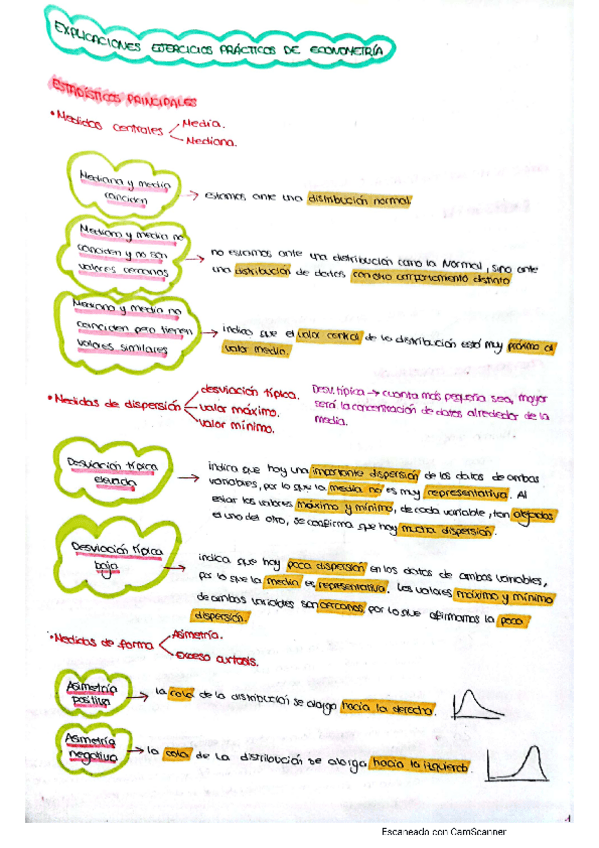 EXPLICACIONES EJERCICIOS PRÁCTICOS DE ECONOMETRÍA
ESTADÍSTICOS PRINCIPALES
• Medidas centrales
Media.
Mediana.
Mediana y media
coinciden
→ estamos ante una distribución normal.
Mediana y media no
coinciden y no son
valores cercanos
→ no estamos ante una distribución como la Normal, sino ante
una distribución de datos con otro comportamiento distinto
Mediana y media no
coinciden pero tienen
valores similares
→ indica que el valor central de la distribución está muy próximo al
valor medio.
• Medidas de dispersión
desviación típica.
valor máximo.
valor mínimo.
Desv. típica → cuanta más pequeña sea, mayor
será la concentración de datos alrededor de la
media.
Desviación típica
elevada
→ indica que hay una importante dispersión de los datos de ambas
variables, por lo que la media no es muy representativa. Al
estar los valores máximo y mínimo, de cada variable, tan alejados
el uno del otro, se confirma que hay mucha dispersión.
Desviación típica
baja
→ indica que hay poca dispersión en los datos de ambas variables,
por lo que la media es representativa. Los valores máximo y mínimo
de ambas variables son cercanos por lo que afirmamos la poca
dispersión.
• Medidas de forma
Asimetría.
Exceso curtosis.
Asimetría
positiva
→ la cola de la distribución se alarga hacia la derecha.
Asimetría
negativa
→ la cola de la distribución se alarga hacia la izquierda.
1
Escaneado con CamScanner